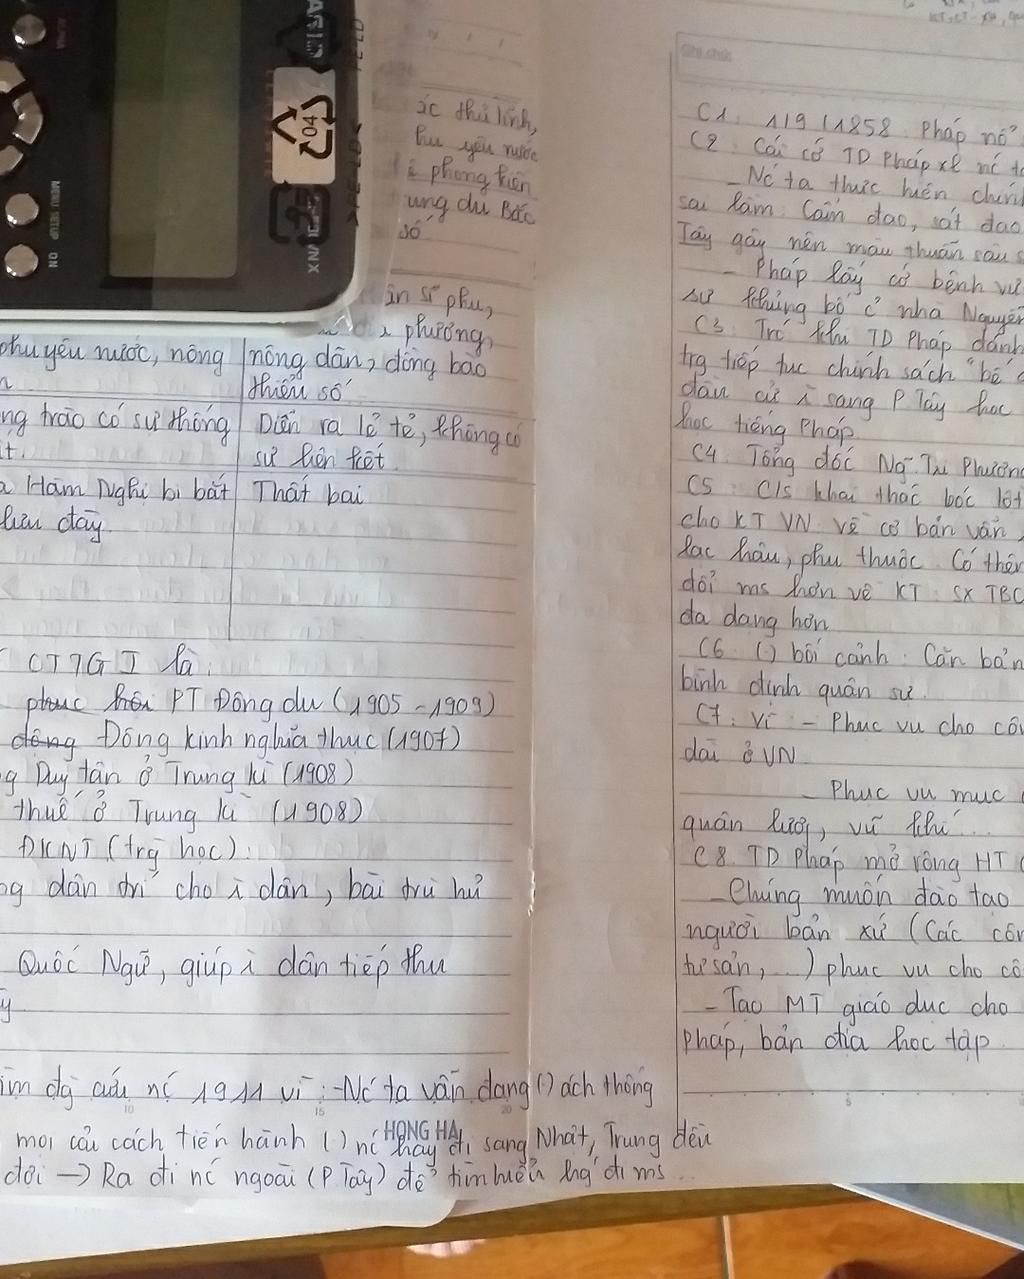 MENU SETUP
ON
04
>PE-LD<
ác thủ lĩnh,
hu yêu nước
phong kiến
ung du Bắc
số
ân sĩ phu,
phương,
phu yêu nước, nông
nông dân, đồng bào
thiểu số
ng trào có sự thống
Diễn ra lẻ tẻ, không có
sự liên kết
a Hàm Nghi bị bắt
Thất bại
lưu đày.
CTTG I là:
phục hồi PT Đông du (1905 - 1909)
động Đông kinh nghĩa thục (1907)
g Duy tân ở Trung kì (1908)
thuế ở Trung kì (1908)
ĐKNT (trg học):
ng dân trí cho i dân, bài trừ hủ
Quốc Ngữ, giúp i dân tiếp thu
y
ìm đg cứu nc 1911 vì: - Nc ta vẫn đang () ách thống
10 15 20
HONG HA
mọi cải cách tiến hành () nc hay đi sang Nhật, Trung đều
đợi → Ra đi nc ngoài (P Tây) để tìm hiểu hg đi ms...
Ghi chú:
C1: 1/9/1858: Pháp nổ
C2: Cái cớ TD Pháp xl nc ta
- Nc ta thực hiện chính
sai lầm: Cấm đạo, sát đạo
Tây gây nên mâu thuẫn sâu s
- Pháp lấy cớ bênh vự
sự khủng bố c nhà Nguyễn
C3: Trc khi TD Pháp đánh
trg tiếp tục chính sách "bế
dân cử i sang P Tây học
học tiếng Pháp
C4: Tổng đốc Ng. Tri Phương
C5: C/s khai thác bóc lột
cho KT VN về cơ bản vẫn
lạc hậu, phụ thuộc. Có thêm
đổi ms hơn về KT: SX TBC
đa dạng hơn
C6: () bối cảnh: Căn bản
bình định quân sự.
C7: Vì: - Phục vụ cho côn
dài ở VN
- Phục vụ mục
quân lươg, vũ khí...
C8: TD Pháp mở rộng HT
- Chúng muốn đào tạo
người bản xứ (Các côn
tư sản,...) phục vụ cho cô
- Tạo MT giáo dục cho
Pháp, bản địa học tập.
5